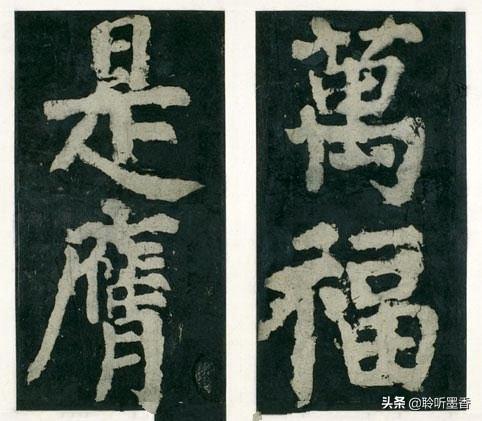 萬福
是膺
头条 @聆听墨香